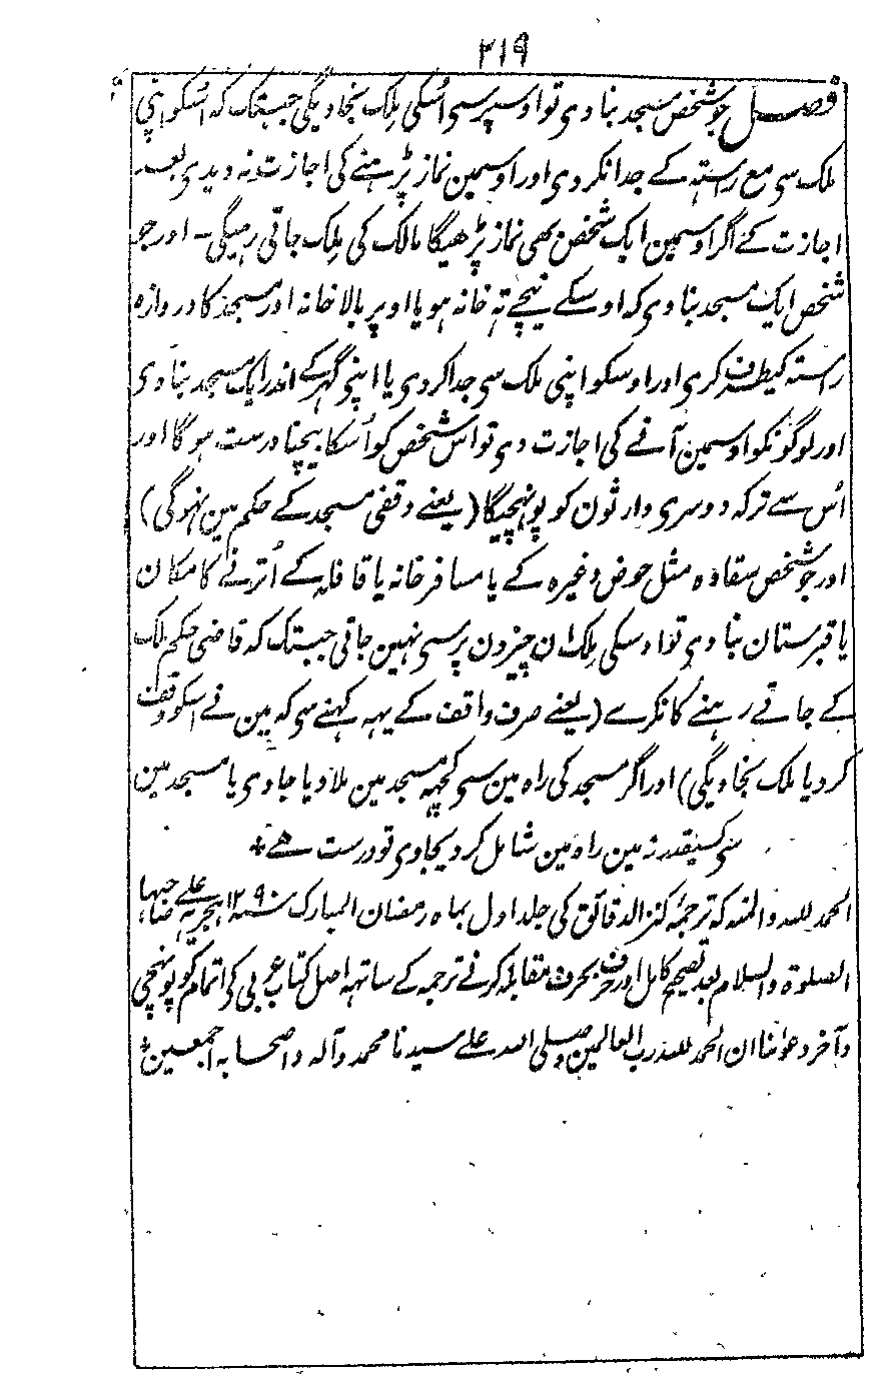 ۲۱۹
فصل جو شخص مسجد بنا دی تو اوسپرسی اُسکی مِلک نجاویگی جبتک کہ اُسکو اپنی
ملک سی مع رستہ کے جدا نکر دی اور اوسمین نماز پڑہنے کی اجازت نہ دیدی بعد
اجازت کے اگر اوسمین ایک شخص بھی نماز پڑھیگا مالک کی مِلک جاتی رہیگی ۔ اور جو
شخص ایک مسجد بنا وی کہ اوسکے نیچے تہ خانہ ہو یا اوپر بالا خانہ اور مسجد کا دروازہ
رستہ کیطرف کری اور اوسکو اپنی ملک سی جدا کر دی یا اپنی گہر کے اندر ایک مسجد بنا وی
اور لوگونکو اوسمین آنے کی اجازت دی تو اس شخص کو اُسکا بیچنا درست ہوگا اور
اُس سے ترکہ دوسری وارثون کو پونہچیگا (یعنے وقفی مسجد کے حکم مین نہوگی)
اور جو شخص سقاوہ مثل حوض وغیرہ کے یا مسافر خانہ یا قافلہ کے اُترنے کا مکان
یا قبرستان بنا وی تو اوسکی مِلک ان چیزون پرسی نہین جاتی جبتک کہ قاضی حکم ملک
کے جاتے رہنے کا نکرے (یعنے صرف واقف کے یہہ کہنے سی کہ مین نے اسکو وقف
کر دیا ملک نجاویگی) اور اگر مسجد کی راہ مین سی کچہہ مسجد مین ملا دیا جاوی یا مسجد مین
سی کسیقدر زمین راہ مین شامل کر دیجاوی تو درست ہے
الحمد للہ والمنہ کہ ترجمۂ کنز الدقائق کی جلد اول بماہ رمضان المبارک سنہ ۱۲۹۰ ہجریہ علے صاحبہا
الصلوۃ والسلام بعد تصحیح کامل اور حرف بحرف مقابلہ کرنے ترجمہ کے ساتہہ اصل کتاب عربی کو اتمام کو پونہچی
وآخر دعوٰنا ان الحمد للہ رب العالمین وصلی اللہ علے سیدنا محمد وآلہ واصحابہ اجمعین